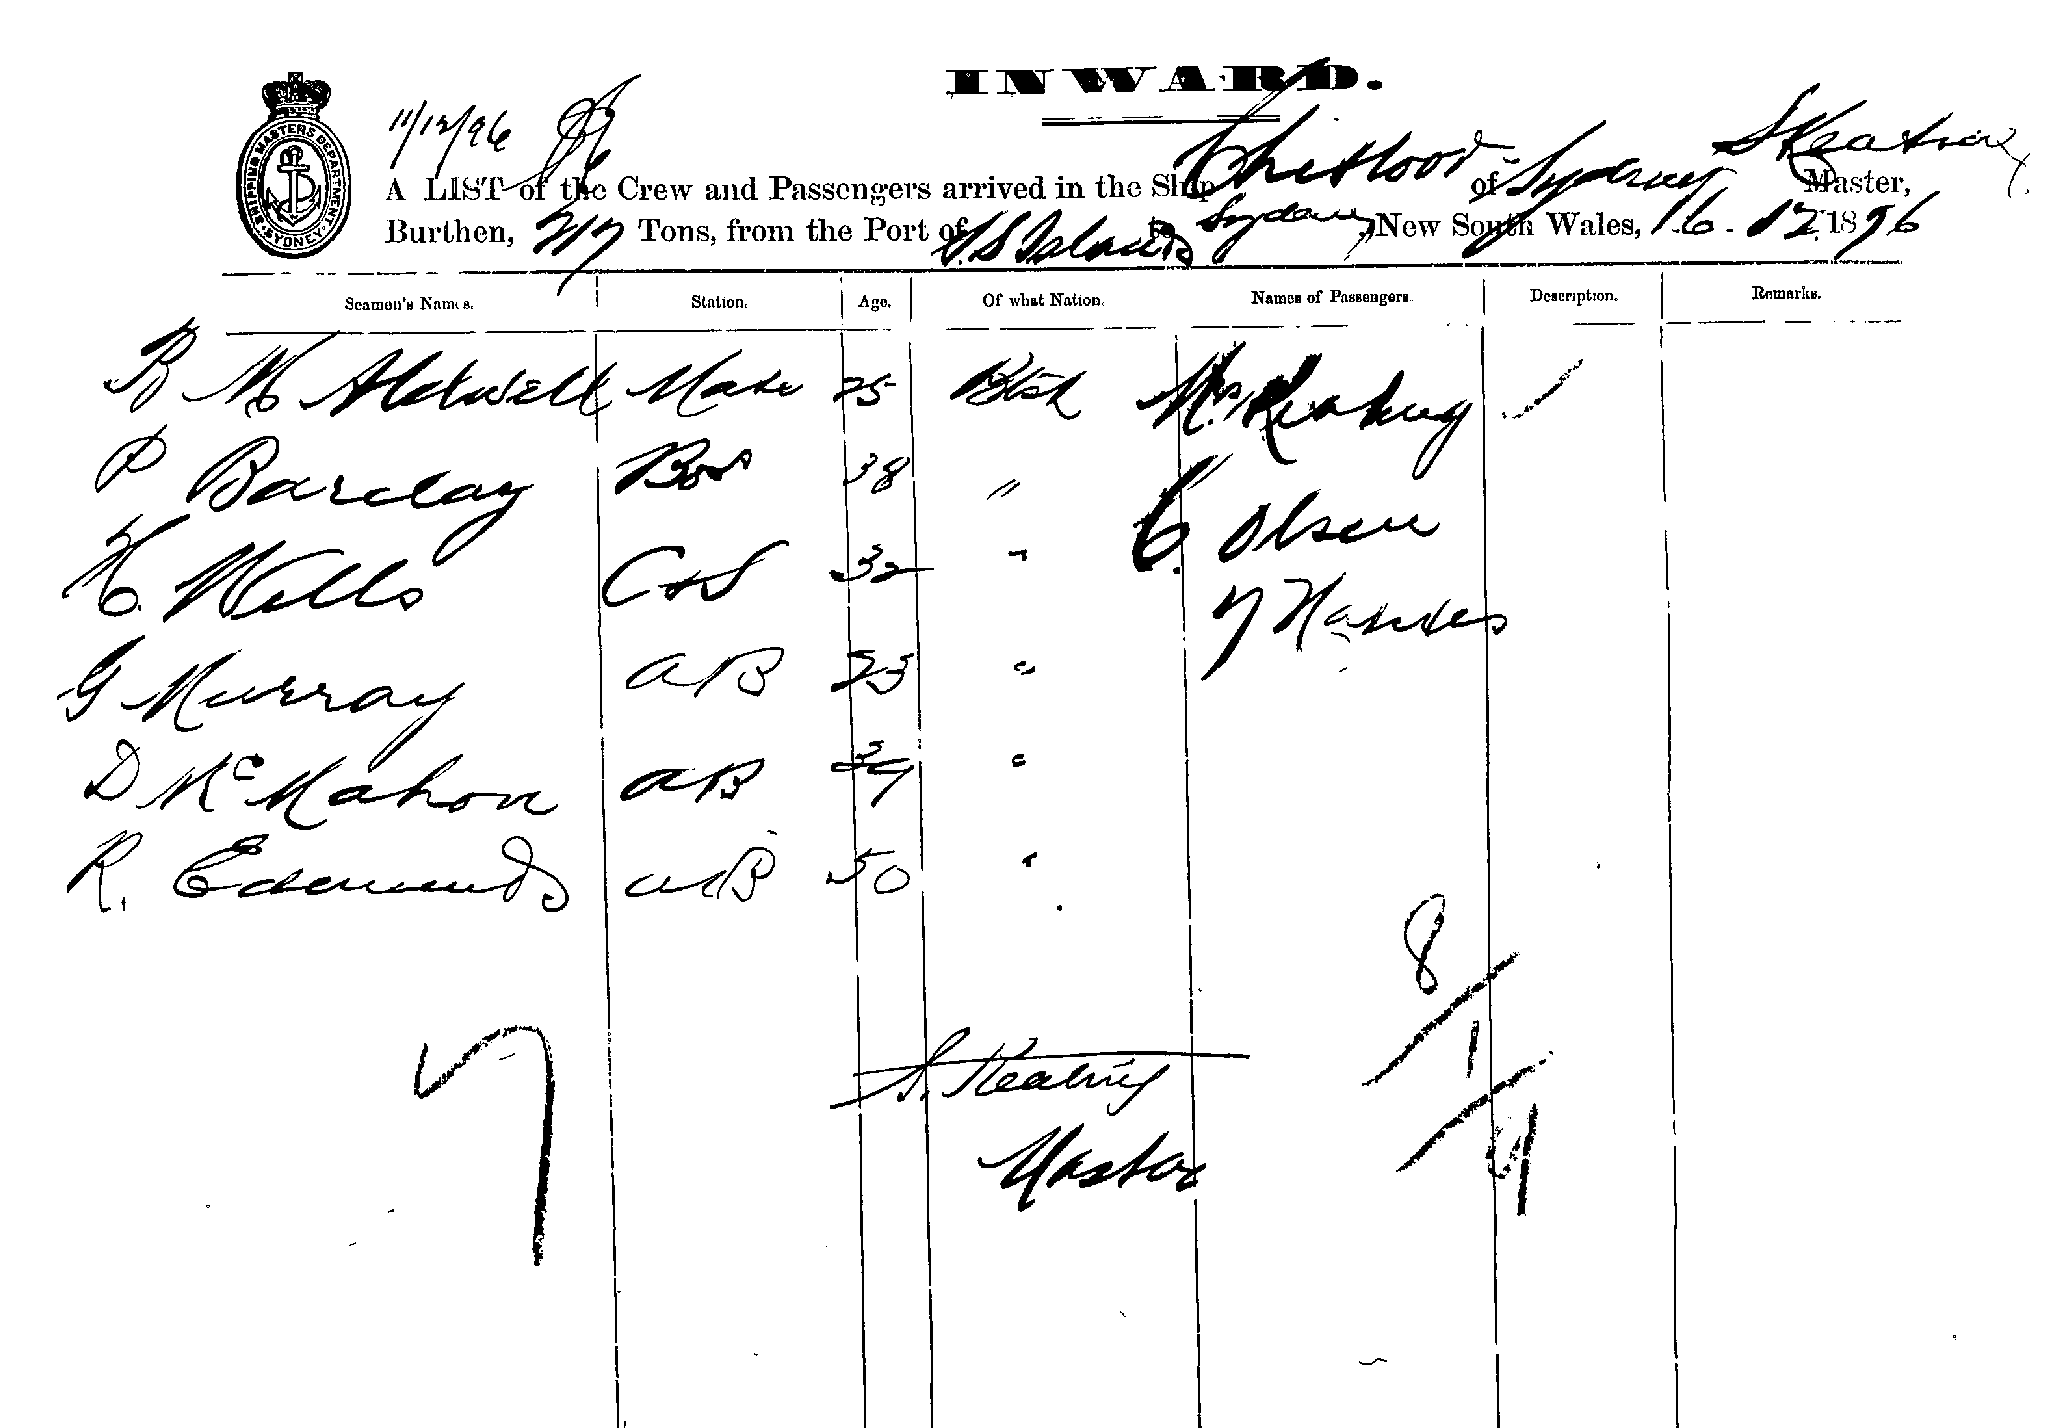 INWARD.
SHIPPING MASTERS DEPARTMENT SYDNEY
11/12/96
A LIST of the Crew and Passengers arrived in the Ship of Sydney S Keating Master,
Burthen, 217 Tons, from the Port of S.S Islands to Sydney, New South Wales, 16. 12. 1896
Seamen's Names. Station. Age. Of what Nation. Names of Passengers. Description. Remarks.
R Mc Aldwell Mate 25 Btsh Mrs Keating
P Barclay Bos 38 " C. Olsen
H. Wells C&S 32 "
G Murray AB 23 "
D McMahon AB 39 "
R. Edmunds AB 50 "
8
1
7 9
S. Keating
Master